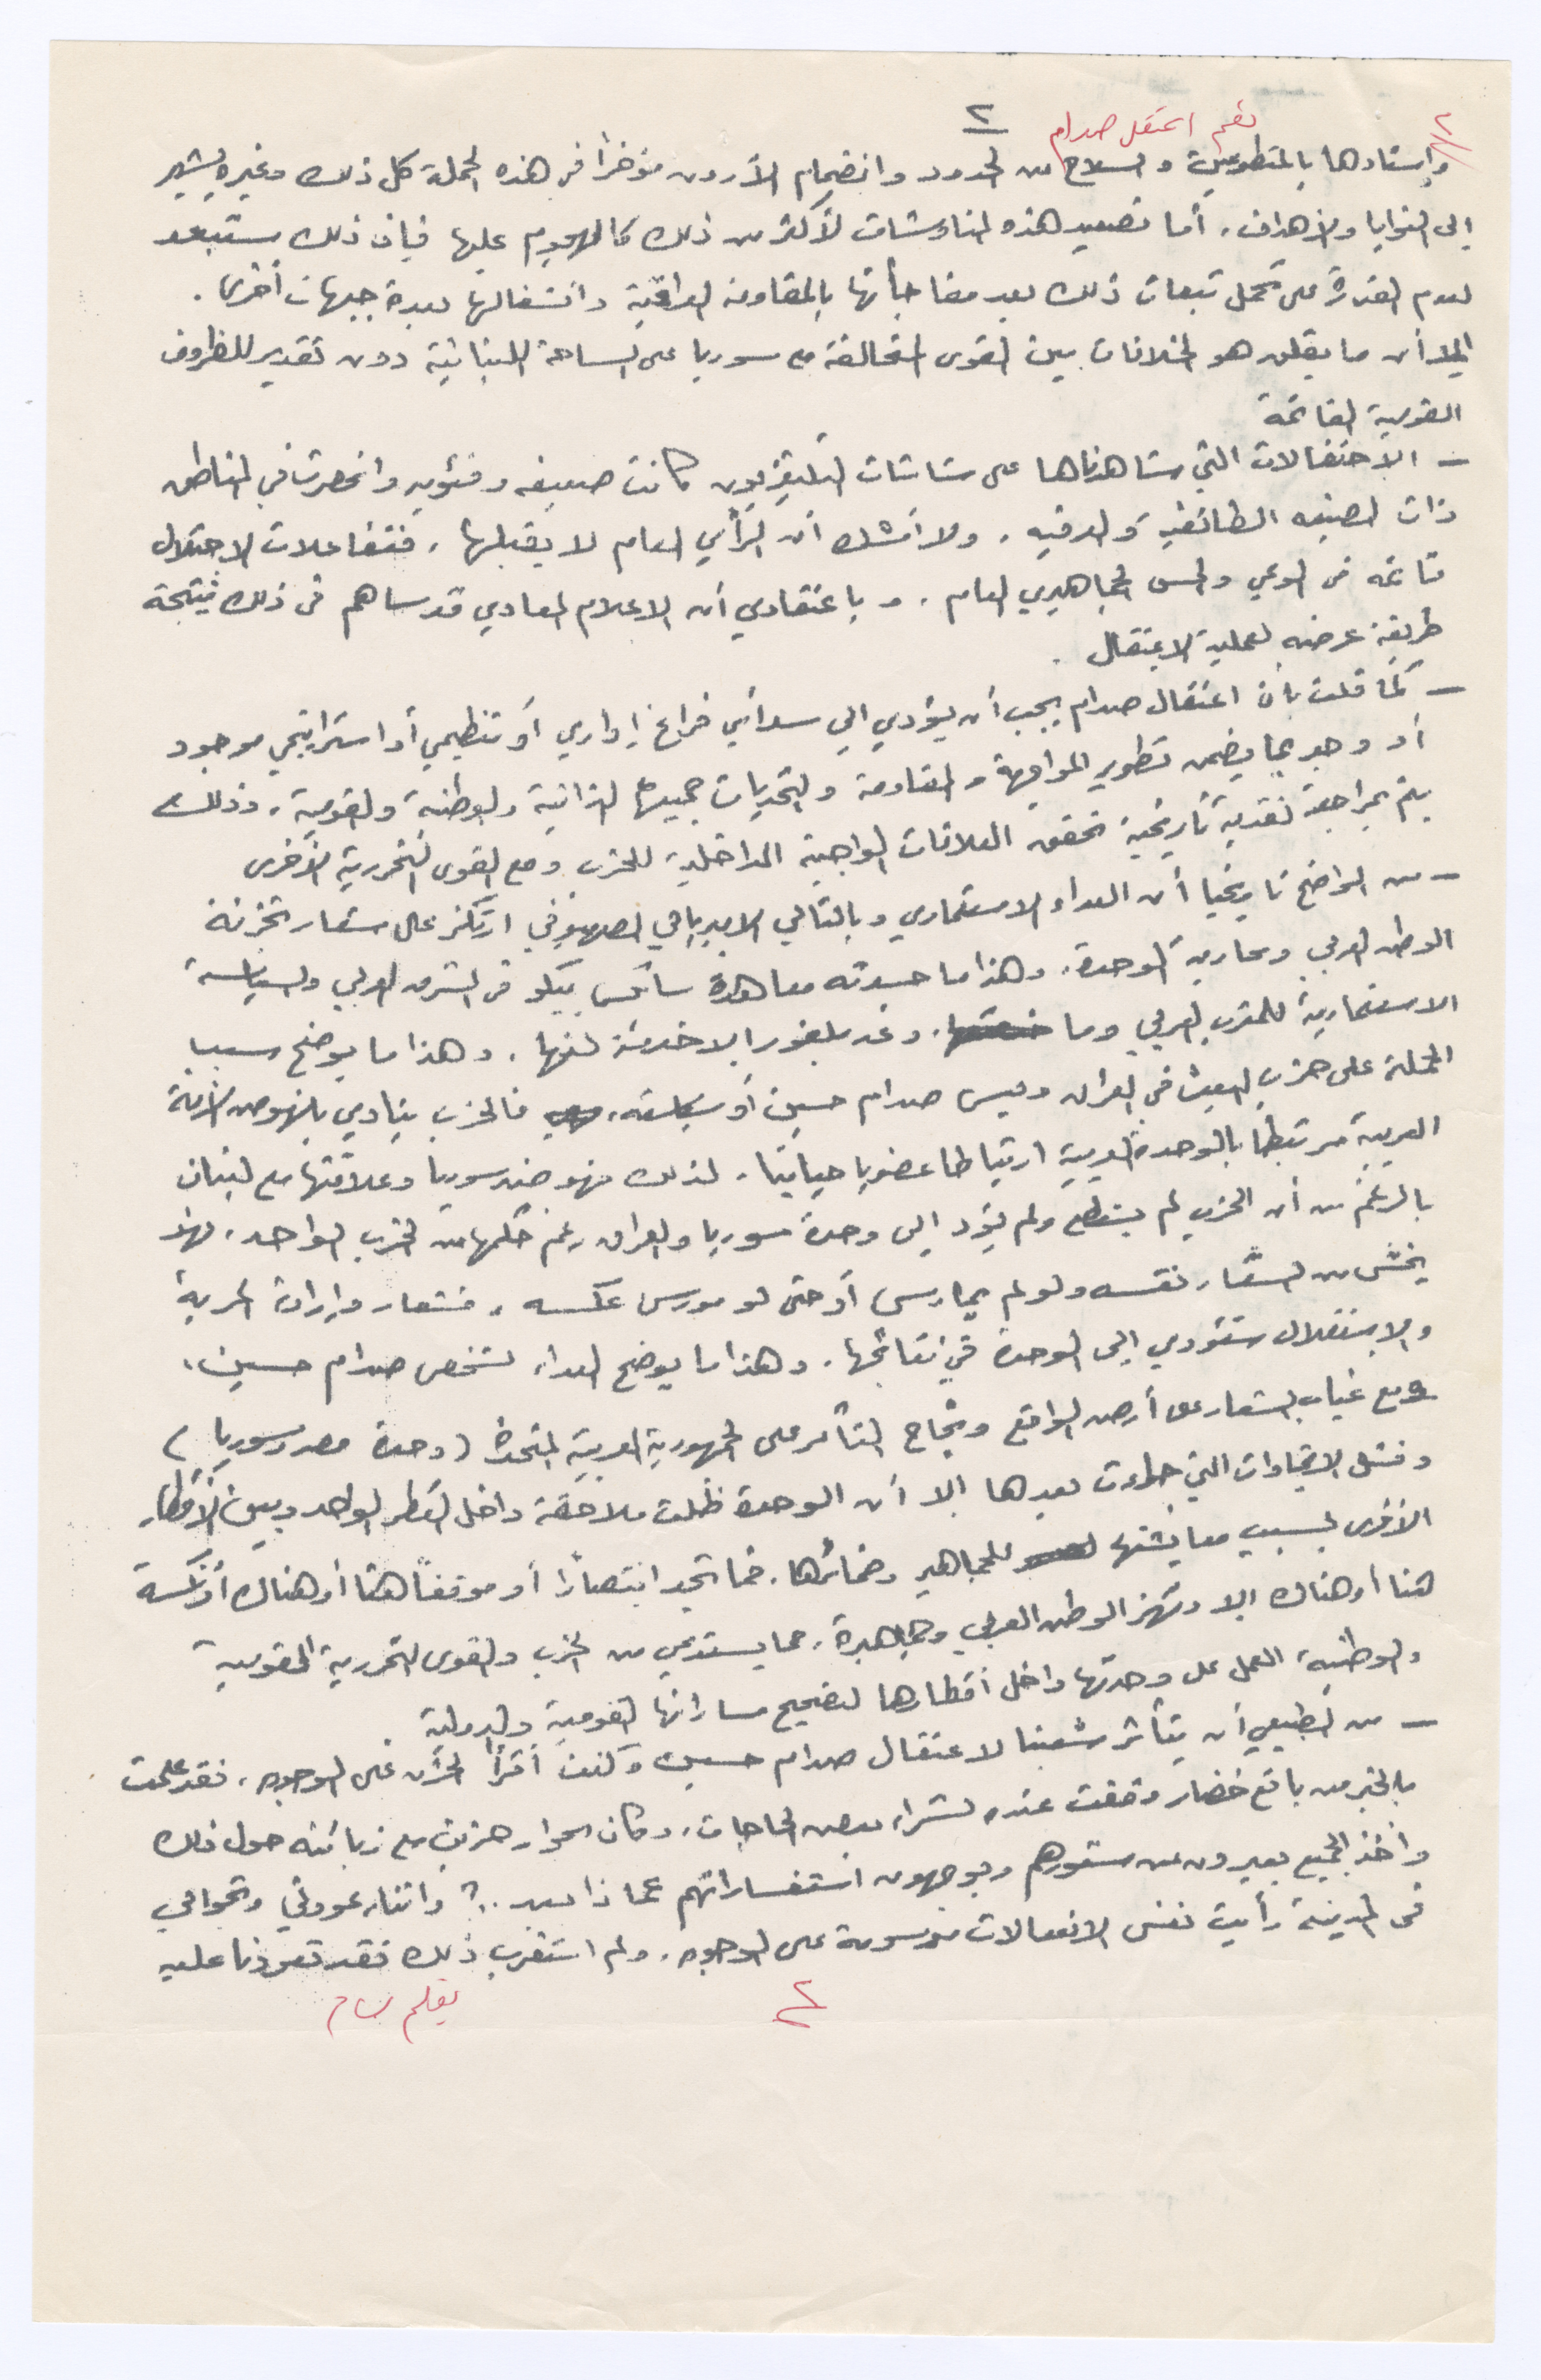 ٢
٢
نعم اعتقل صدام
وإسنادها بالمتطوعين والسلاح من الحدود وانضمام الأردن مؤخراً في هذه الحملة كل ذلك وغيره يشير
إلى النوايا والأهداف. أما تصعيد هذه المناوشات لأكثر من ذلك كالهجوم عليها فإن ذلك مستبعد
لعدم القدرة على تحمل تبعات ذلك بعد مفاجأتها بالمقاومة العراقية وانشغالها بعدة جبهات أخرى.
إلا أن ما يقلق هو الخلافات بين القوى المتحالفة مع سوريا على الساحة اللبنانية دون تقدير للظروف
القومية القائمة
- الاحتفالات التي شاهدناها على شاشات التليفزيون كانت ضعيفه وفئويه وانحصرت في المناطق
ذات الصبغه الطائفيه والعرقيه. ولا أشك أن الرأي العام لا يقبلها. فتفاعلات الاحتلال
قائمه في الوعي والحس الجماهيري العام. وباعتقادي أن الاعلام المعادي قد ساهم في ذلك نتيجة
طريقة عرضه لعملية الاعتقال.
- كما قلت بأن اعتقال صدام يجب أن يؤدي إلى سد أي فراغ إداري أو تنظيمي أو استراتيجي موجود
أو وجد بما يضمن تطوير المواجهة والمقاومة والتحديات جميعها الذاتية والوطنية والقومية. وذلك
يتم بمراجعة نقدية تأريخية تحقق العلاقات الواجبة الداخلية للحزب ومع القوى التحررية الأخرى
- من الواضح تاريخيا أن العداء الاستعماري وبالتالي الامبريالي الصهيوني ارتكز على شعار تجزئة
الوطن العربي ومحاربة الوحدة. وهذا ما جسدته معاهدة سايكس بيكو في المشرق العربي والسياسة
الاستعمارية للمغرب العربي وما وعد بلفور إلا خدمة لنهجها. وهذا ما يوضح سبب
الحملة على حزب البعث في العراق وليس صدام حسين أو سياسته. فالحزب ينادي بنهوض الأمة
العربية مرتبطا بالوحدة العربية ارتباطا عضويا حياتيا. لذلك فهو ضد سوريا وعلاقتها مع لبنان
بالرغم من أن الحزب لم يستطع ولم يؤد إلى وحدة سوريا والعراق رغم حكمهما من الحزب الواحد. فهو
يخشى من الشعار نفسه ولو لم يمارس أو حتى لو مورس عكسه. فشعار وإرادة الحرية
والاستقلال ستؤدي إلى الوحدة في نتائجها. وهذا ما يوضح العداء لشخص صدام حسين.
ومع غياب الشعار على أرض الواقع ونجاح التآمر على الجمهورية العربية المتحدة (وحدة مصر وسوريا)
وفشل الاتحادات التي جاءت بعدها إلا أن الوحدة ظلت ملاحقة داخل القطر الواحد وبين الأقطار
الأخرى بسبب معايشتها للجماهير وضمائرها. فما تجد انتصاراً أو موقفاً هنا أو هناك أو نكسة
هنا أو هناك إلا وتهز الوطن العربي وجماهيره. مما يستدعي من الحزب والقوى التحررية القومية
والوطنية، العمل على وحدتها داخل أقطارها لتصحيح مساراتها القومية والدولية
- من الطبيعي أن يتأثر شعبنا لاعتقال صدام حسين وكنت أقرأ الحزن على الوجوه. فقد علمت
بالخبر من بائع خضار وقفت عنده لشراء بعض الحاجات. وكان الحوار حزين مع زبائنه حول ذلك
وأخذ الجميع يعبرون عن شعورهم ويوجهون استفساراتهم عما ذا بعد ..؟ واثناء عودتي وتجوالي
في المدينة رأيت نفس الانفعالات مرسومة على الوجوه. ولم استغرب ذلك فقد تعودنا عليه
٢
بقلم بسام